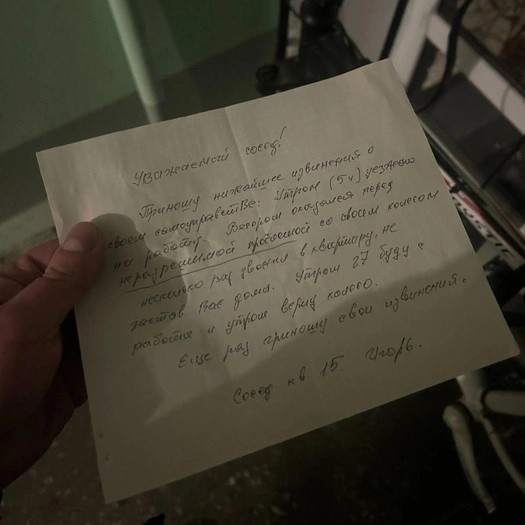 Уважаемый сосед!
Приношу нижайшее извинения о
своем самоуправстве: Утром (5ч) уезжаю
на работу. Вечером оказался перед
неразрешимой проблемой со своим колесом
несколько раз звонил в квартиру, не
застав Вас дома. Утром 27 буду с
работы и утром верну колесо.
Еще раз приношу свои извинения.
Сосед кв 15 Игорь.